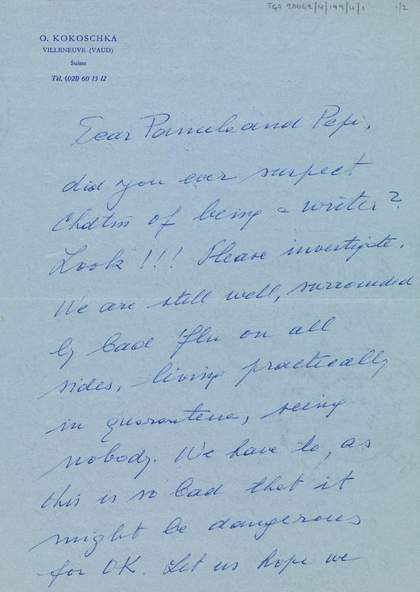 TGA 20062/4/199/4/1
1/2
O. KOKOSCHKA
VILLENEUVE (VAUD)
Suisse
Tél. (021) 60 13 12
Dear Pamela and Pepi,
did you ever suspect
of being a writer?
Look!!! Please investigate.
We are still well, surrounded
by bad flu on all
sides, living practically
in quarantene, seing
nobody. We have to, as
this is so bad that it
might be dangerous
for OK. Let us hope we